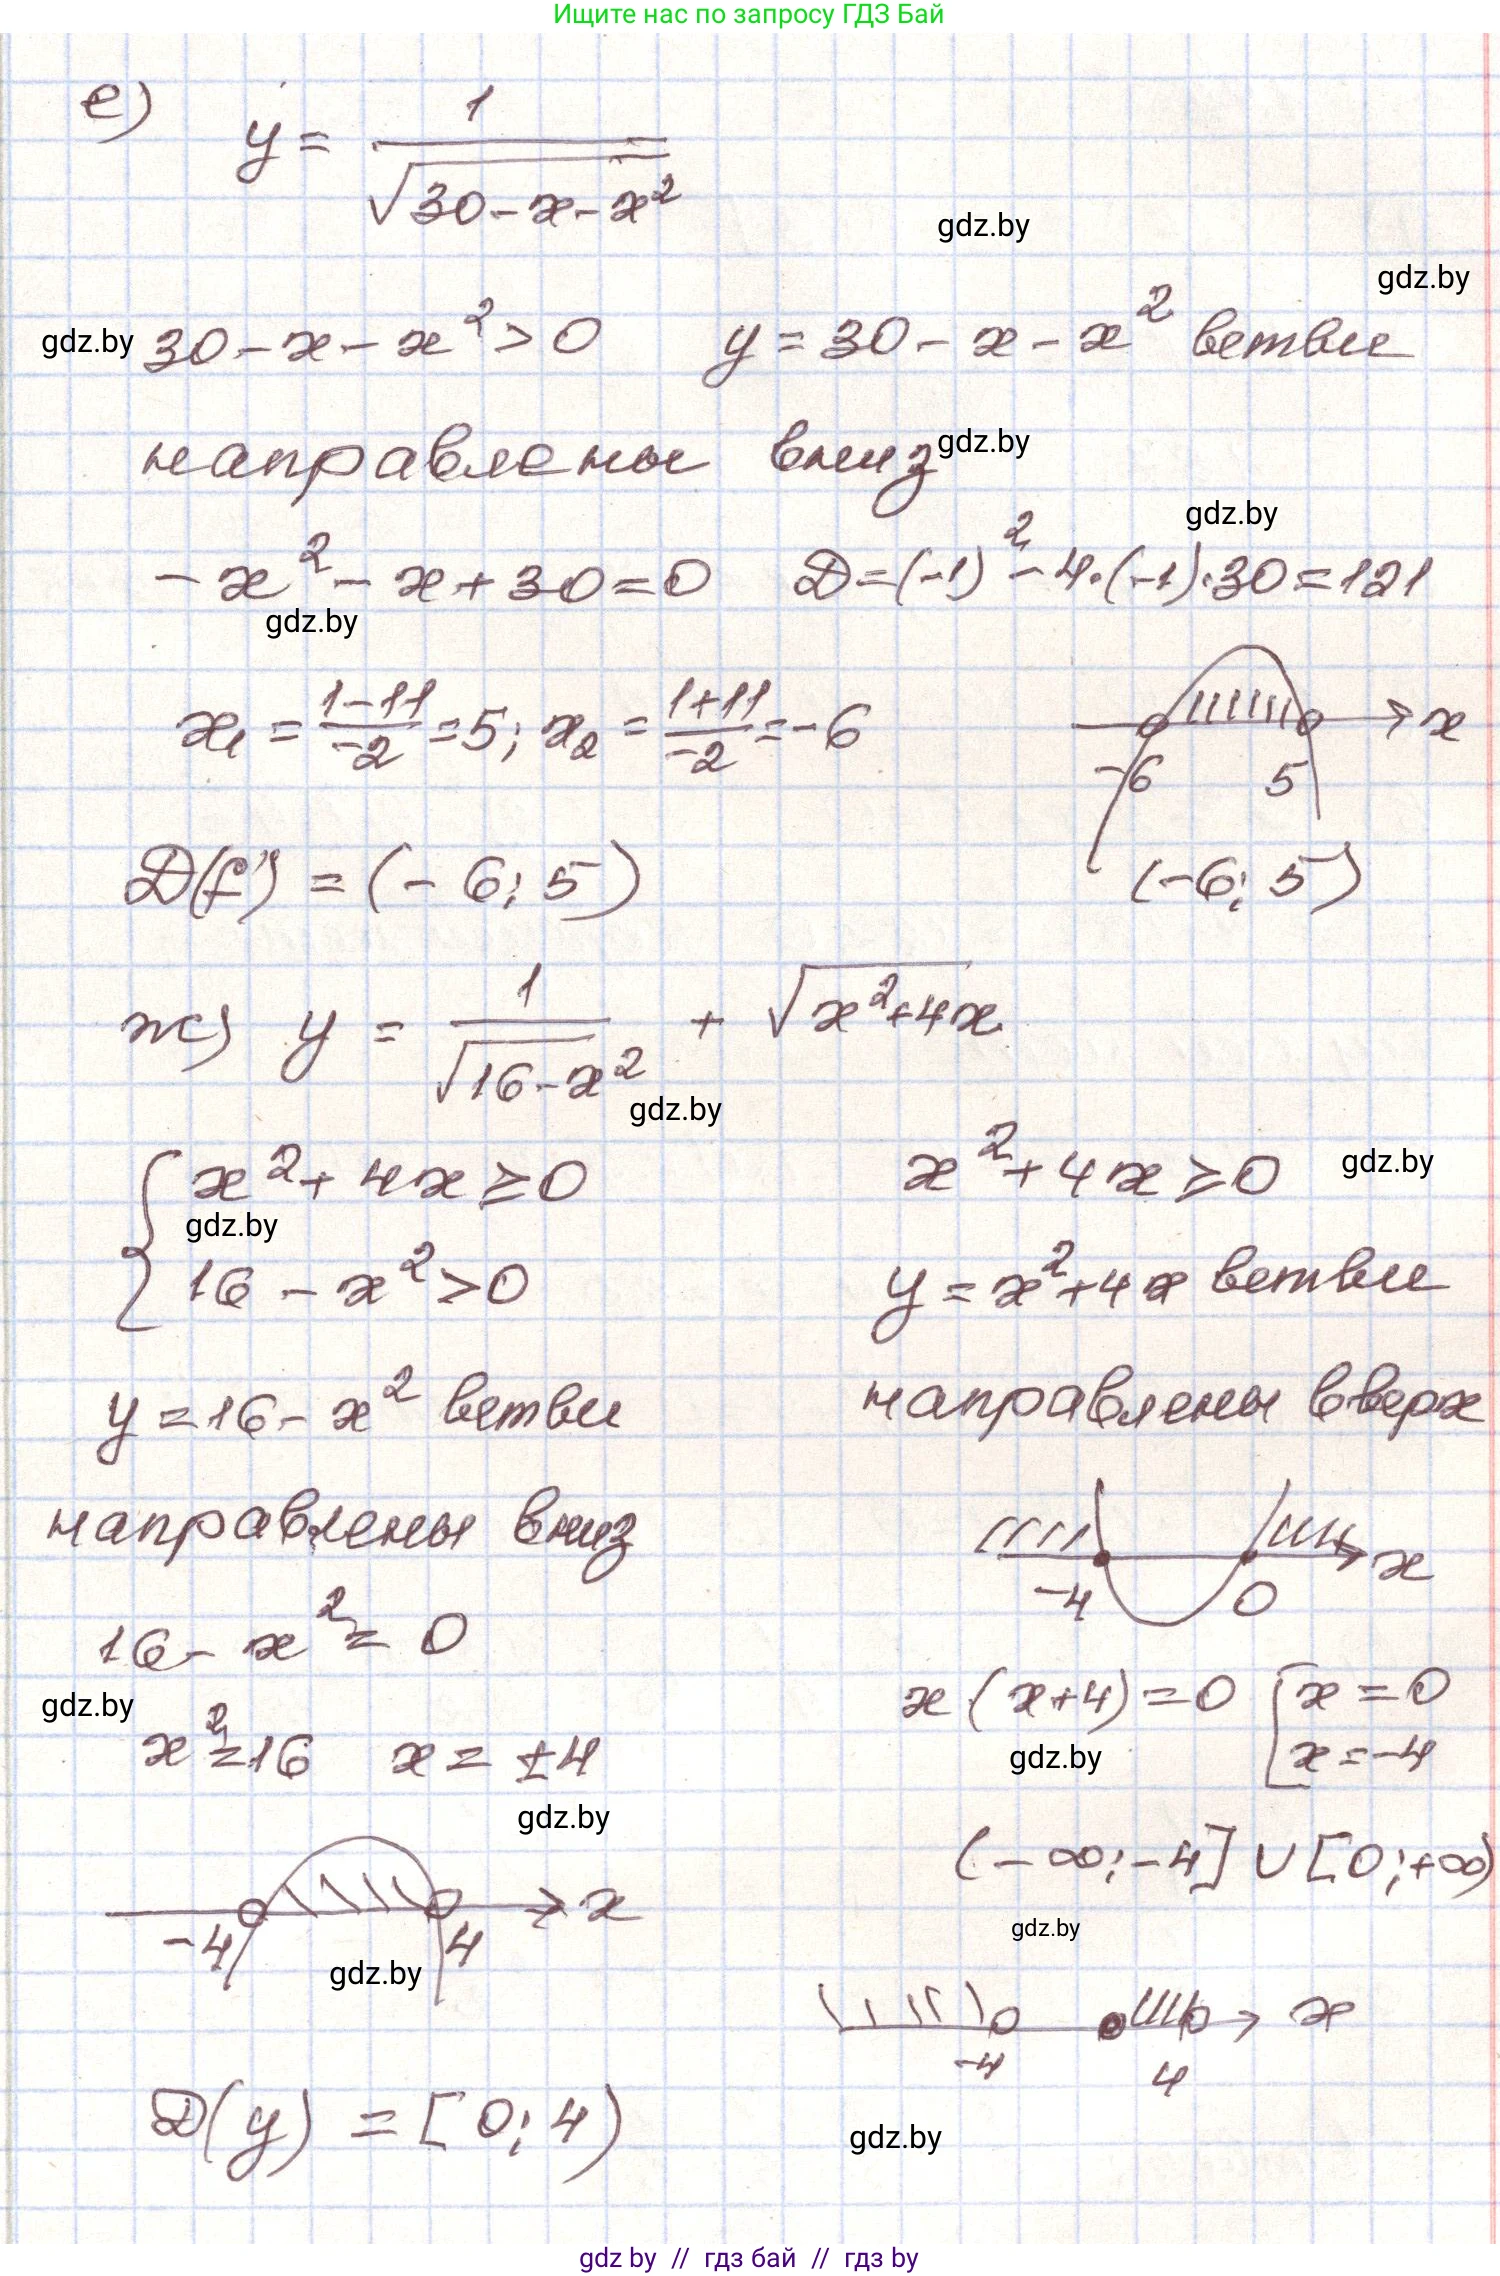 Ищите нас по запросу ГДЗ Бай
е) y = 1/√(30-x-x²)
gdz.by
gdz.by
gdz.by
30-x-x²>0 y=30-x-x² ветви
направлены вниз
gdz.by
gdz.by
-x²-x+30=0 D=(-1)²-4·(-1)·30=121
gdz.by
x₁ = (1-11)/-2 = 5; x₂ = (1+11)/-2 = -6
x
-6 5
D(f) = (-6; 5)
(-6; 5)
ж) y = 1/√(16-x²) + √(x²+4x)
gdz.by
{ x²+4x≥0
16-x²>0
gdz.by
x²+4x≥0
gdz.by
y=x²+4x ветви
направлены вверх
y=16-x² ветви
направлены вниз
-4 0 x
16-x²=0
gdz.by
x²=16 x=±4
gdz.by
x·(x+4)=0 [ x=0
x=-4
gdz.by
(-∞;-4]∪[0;+∞)
gdz.by
-4 4 x
gdz.by
-4 4 x
D(y) = [0; 4)
gdz.by
gdz.by // гдз бай // гдз by